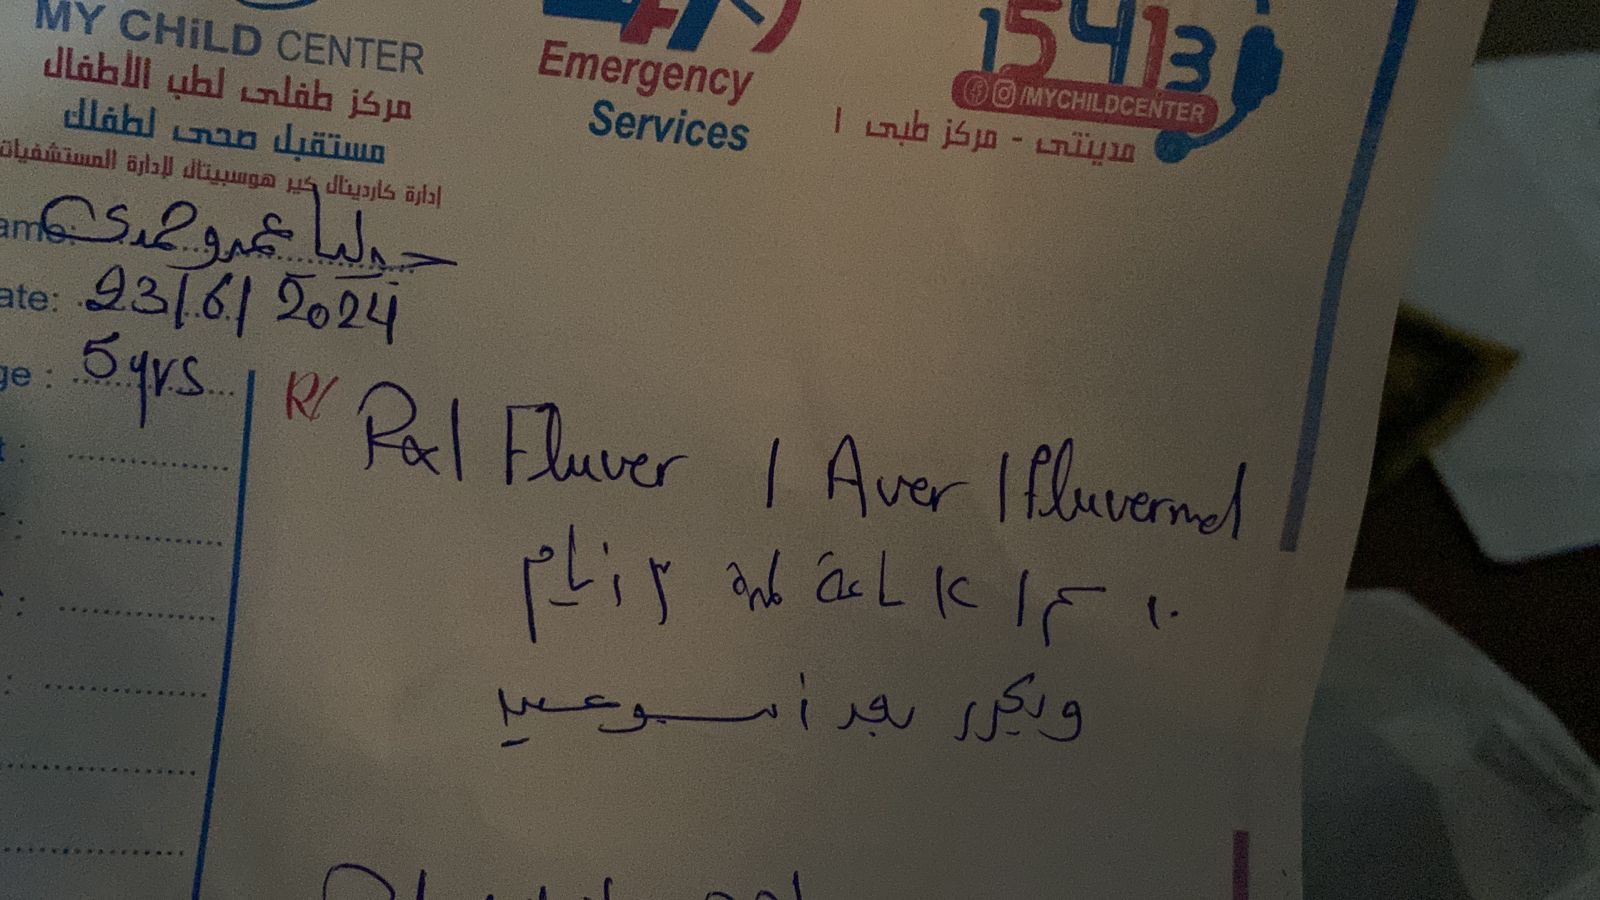 MY CHiLD CENTER
مركز طفلى لطب الأطفال
مستقبل صحى لطفلك
إدارة كاردينال كير هوسبيتال لإدارة المستشفيات
Emergency
Services
15413
/MYCHILDCENTER
مدينتى - مركز طبى ١
ame: عمرو حمدى
ate: 23/6/2024
ge : 5 yrs
R/
Fluver / Aver / fluvermal
١٠ سم / ٢ أيام
ويكرر بعد أسبوعين